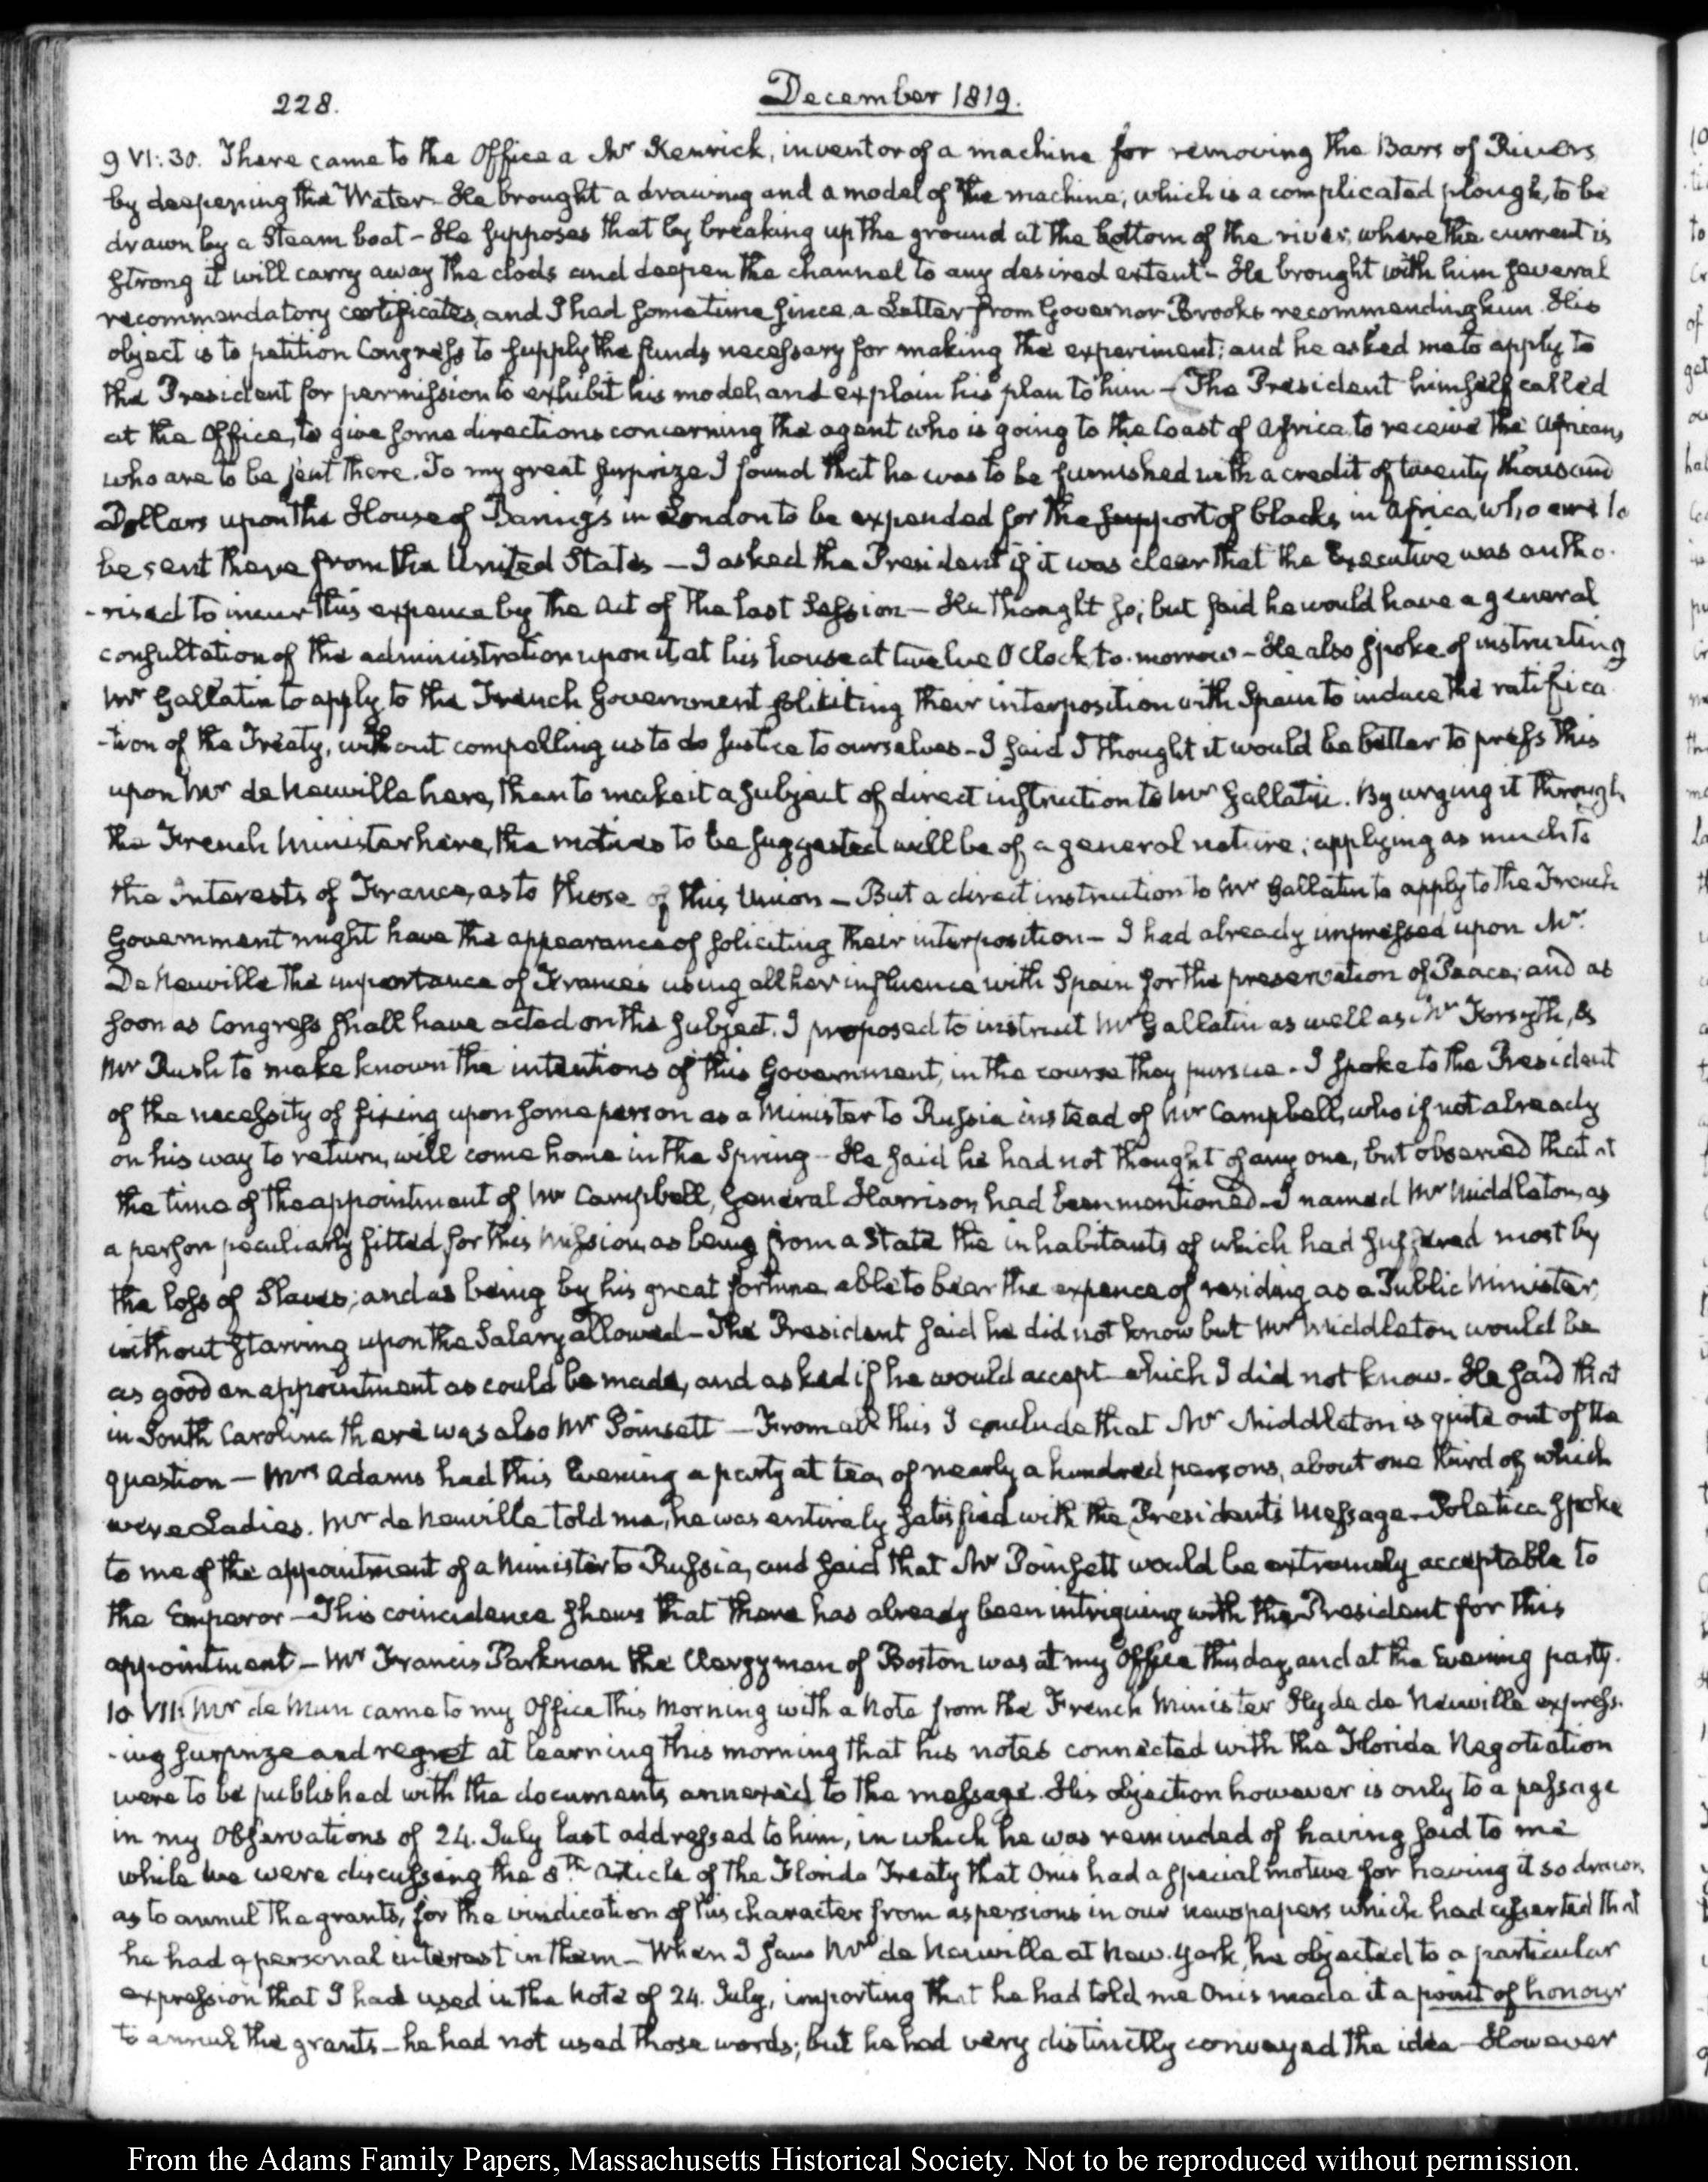 228.
December 1819.
9 VI: 30. There came to the Office a Mr Kenrick, inventor of a machine for removing the Bars of Rivers
by deepening the Water. He brought a drawing and a model of the machine, which is a complicated plough, to be
drawn by a Steam boat - He supposes that by breaking up the ground at the bottom of the river, where the current is
strong it will carry away the clods and deepen the channel to any desired extent - He brought with him several
recommendatory certificates, and I had sometime since a Letter from Governor Brooks recommending him. His
object is to petition Congress to supply the funds necessary for making the experiment; and he asked me to apply to
the President for permission to exhibit his model, and explain his plan to him - The President himself called
at the Office, to give some directions concerning the agent who is going to the Coast of Africa to receive the Africans,
who are to be sent there. To my great surprize I found that he was to be furnished with a credit of twenty thousand
Dollars upon the House of Barings in London to be expended for the support of blacks in Africa, who are to
be sent there from the United States - I asked the President if it was clear that the Executive was autho-
-rised to incur this expence by the Act of the last Session - He thought so; but said he would have a general
consultation of the administration upon it, at his house at twelve O'Clock to-morrow - He also spoke of instructing
Mr Gallatin to apply to the French Government soliciting their interposition with Spain to induce the ratifica-
-tion of the Treaty, without compelling us to do Justice to ourselves - I said I thought it would be better to press this
upon Mr de Neuville here, than to make it a subject of direct instruction to Mr Gallatin. By urging it through
the French Minister here, the motives to be suggested will be of a general nature; applying as much to
the Interests of France, as to those of this Union - But a direct instruction to Mr Gallatin to apply to the French
Government might have the appearance of soliciting their interposition - I had already impressed upon Mr
De Neuville the importance of France's using all her influence with Spain for the preservation of Peace; and as
soon as Congress shall have acted on the subject. I proposed to instruct Mr Gallatin as well as Mr Forsyth, &
Mr Rush to make known the intentions of this Government, in the course they pursue - I spoke to the President
of the necessity of fixing upon some person as a Minister to Russia instead of Mr Campbell, who if not already
on his way to return, will come home in the Spring - He said he had not thought of any one, but observed that at
the time of the appointment of Mr Campbell, General Harrison had been mentioned - I named Mr Middleton, as
a person peculiarly fitted for this Mission, as being from a State the inhabitants of which had suffered most by
the loss of Slaves; and as being by his great fortune able to bear the expence of residing as a Public Minister,
without starving upon the Salary allowed - The President said he did not know but Mr Middleton would be
as good an appointment as could be made, and asked if he would accept - which I did not know. He said that
in South Carolina there was also Mr Poinsett - From all this I conclude that Mr Middleton is quite out of the
question - Mrs Adams had this Evening a party at tea, of nearly a hundred persons, about one third of which
were Ladies. Mr de Neuville told me, he was entirely satisfied with the President's Message - Poletica spoke
to me of the appointment of a Minister to Russia, and said that Mr Poinsett would be extremely acceptable to
the Emperor - This coincidence shews that there has already been intriguing with the President for this
appointment - Mr Francis Parkman the Clergyman of Boston was at my Office this day, and at the Evening party.
10 VII: Mr de Mun came to my Office this Morning with a Note from the French Minister Hyde de Neuville express-
-ing surprize and regret at learning this morning that his notes connected with the Florida Negotiation
were to be published with the documents annexed to the message. His objection however is only to a passage
in my Observations of 24. July last addressed to him, in which he was reminded of having said to me
while we were discussing the 8th Article of the Florida Treaty that Onis had a special motive for having it so drawn,
as to annul the grants, for the vindication of his character from aspersions in our newspapers which had asserted that
he had a personal interest in them - When I saw Mr de Neuville at New-York, he objected to a particular
expression that I had used in the Note of 24. July, importing that he had told me Onis made it a point of honour
to annul the grants - he had not used those words; but he had very distinctly conveyed the idea - However
From the Adams Family Papers, Massachusetts Historical Society. Not to be reproduced without permission.